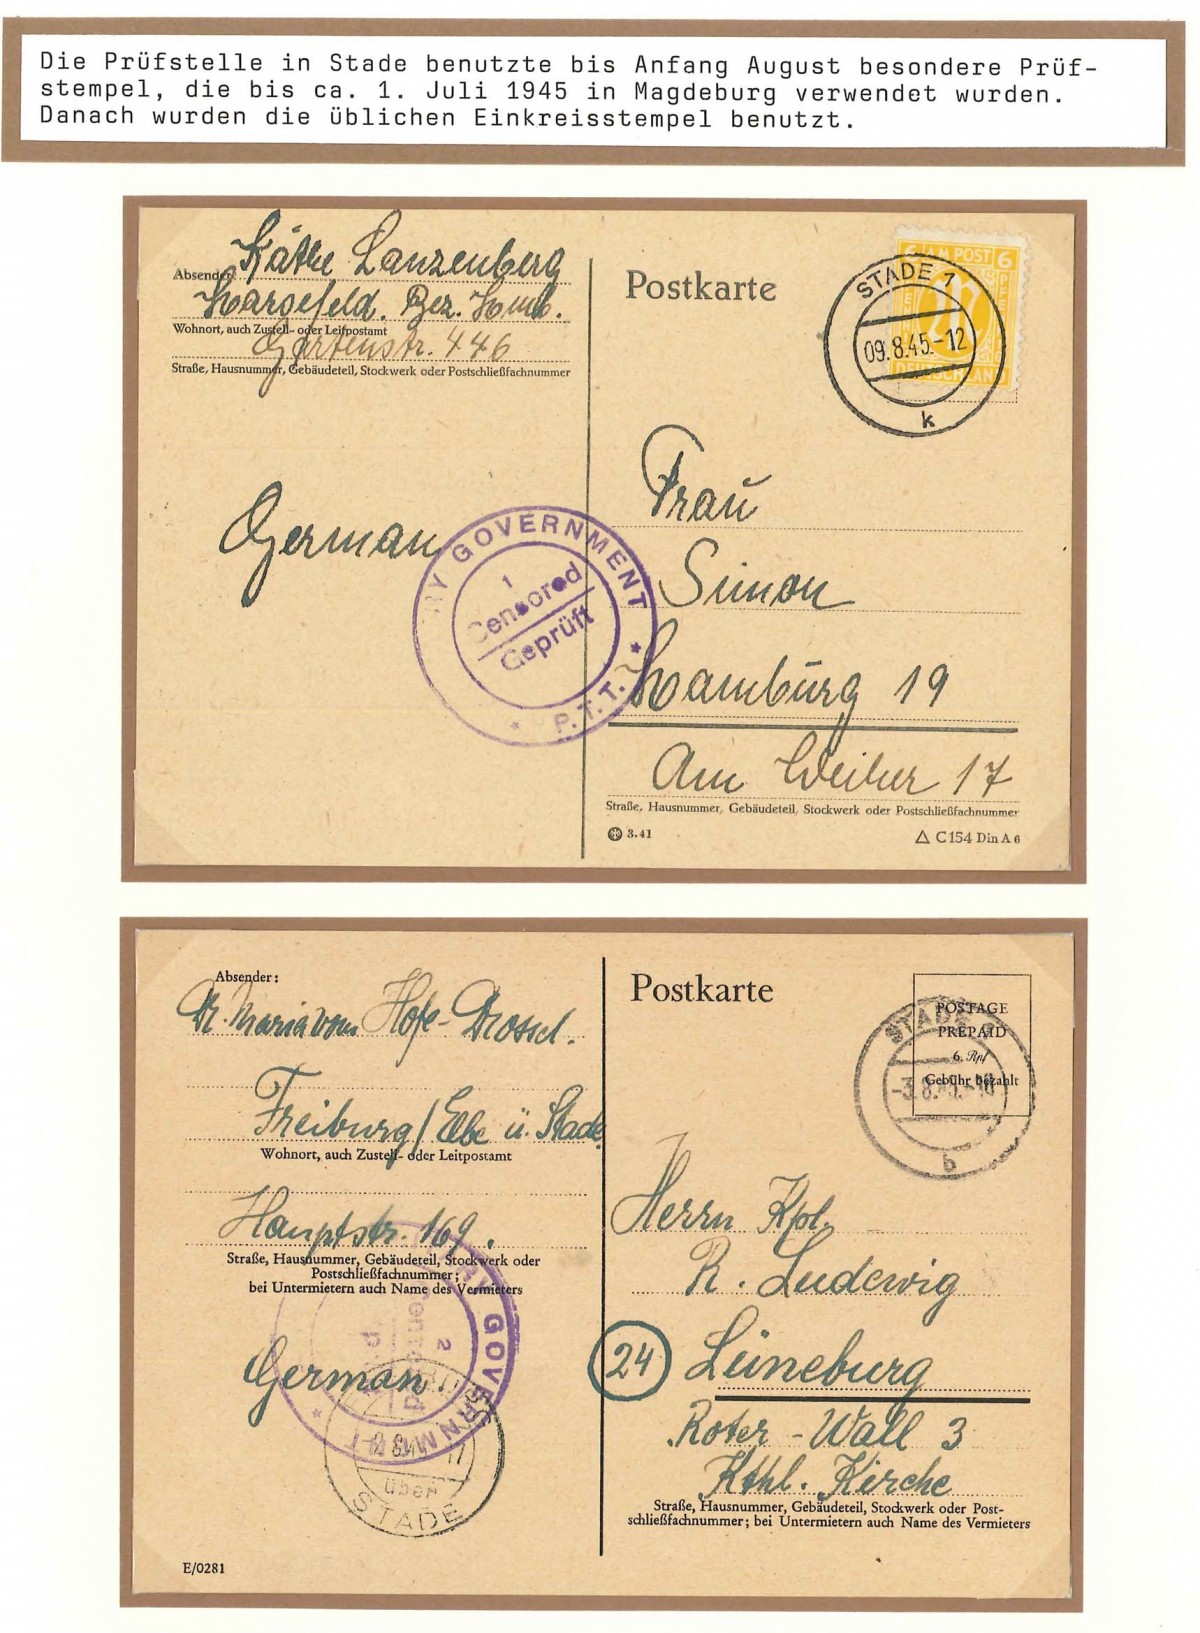 Die Prüfstelle in Stade benutzte bis Anfang August besondere Prüf-
stempel, die bis ca. 1. Juli 1945 in Magdeburg verwendet wurden.
Danach wurden die üblichen Einkreisstempel benutzt.
Käthe Lanzenberg
Absender:
Harsefeld. Bez. Hmb.
Wohnort, auch Zustell- oder Leitpostamt
Gartenstr. 446
Straße, Hausnummer, Gebäudeteil, Stockwerk oder Postschließfachnummer
German
Postkarte
6 AM POST 6
PFENNIG
M
DEUTSCHLAND
STADE 1
09.8.45.-12
k
RY GOVERNMENT
1
Censored
Geprüft
* P.T.T. *
Frau
Simon
Hamburg 19
Am Weiher 17
Straße, Hausnummer, Gebäudeteil, Stockwerk oder Postschließfachnummer
3.41
C 154 Din A 6
Absender:
Dr. Maria vom Hofe-Drossel.
Freiburg/Elbe ü. Stade
Wohnort, auch Zustell- oder Leitpostamt
Hauptstr. 169.
Straße, Hausnummer, Gebäudeteil, Stockwerk oder
Postschließfachnummer;
bei Untermietern auch Name des Vermieters
German.
RY GOVERNMENT
2
Censored
*
über
STADE
E/0281
Postkarte
POSTAGE
PREPAID
6 Rpf
Gebühr bezahlt
STADE
-3.8.45.-18
b
Herrn Kpl.
R. Ludewig
24 Lüneburg
Roter-Wall 3
Kthl. Kirche
Straße, Hausnummer, Gebäudeteil, Stockwerk oder Post-
schließfachnummer; bei Untermietern auch Name des Vermieters